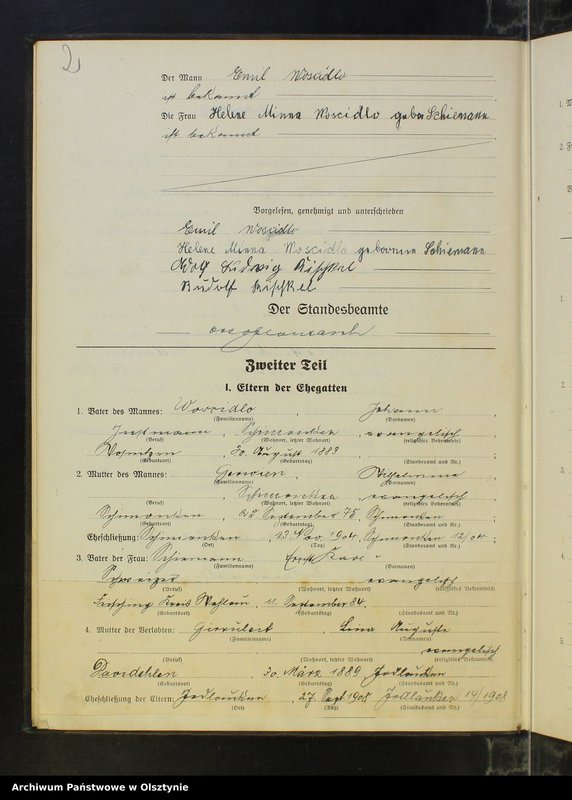 2
Der Mann Emil Woscidlo
ist bekannt
Die Frau Helene Minna Woscidlo geborene Schiemann
ist bekannt
Vorgelesen, genehmigt und unterschrieben
Emil Woscidlo
Helene Minna Woscidlo geborene Schiemann
Ludwig Kischkel
Rudolf Kischkel
Der Standesbeamte
Zweiter Teil
I. Eltern der Ehegatten
1. Vater des Mannes: Woscidlo, Johann
(Familienname) (Vornamen)
Instmann, Schmonken, evangelisch
(Beruf) (Wohnort, letzter Wohnort) (religiöses Bekenntnis)
30. August 1882
(Geburtsort) (Geburtstag) (Standesamt und Nr.)
2. Mutter des Mannes: Wilhelmine
(Familienname) (Vornamen)
Schmonken evangelisch
(Beruf) (Wohnort, letzter Wohnort) (religiöses Bekenntnis)
Schmonken, 25 September 75, Schmonken
(Geburtsort) (Geburtstag) (Standesamt und Nr.)
Eheschließung: Schmonken, 13 Nov. 1904, Schmonken 12/04;
(Ort) (Tag) (Standesamt und Nr.)
3. Vater der Frau: Schiemann Ernst Karl
(Familienname) (Vornamen)
Schweizer evangelisch
(Beruf) (Wohnort, letzter Wohnort) (religiöses Bekenntnis)
Kreis Wehlau, 11. September 84,
(Geburtsort) (Geburtstag) (Standesamt und Nr.)
4. Mutter der Verlobten: Lina Auguste
(Familienname) (Vornamen)
evangelisch
(Beruf) (Wohnort, letzter Wohnort) (religiöses Bekenntnis)
30. März 1889 Jodlauken
(Geburtsort) (Geburtstag) (Standesamt und Nr.)
Eheschließung der Eltern: Jodlauken, 27. Sept 1908 Jodlauken 14/1908
(Ort) (Tag) (Standesamt und Nr.)
Archiwum Państwowe w Olsztynie